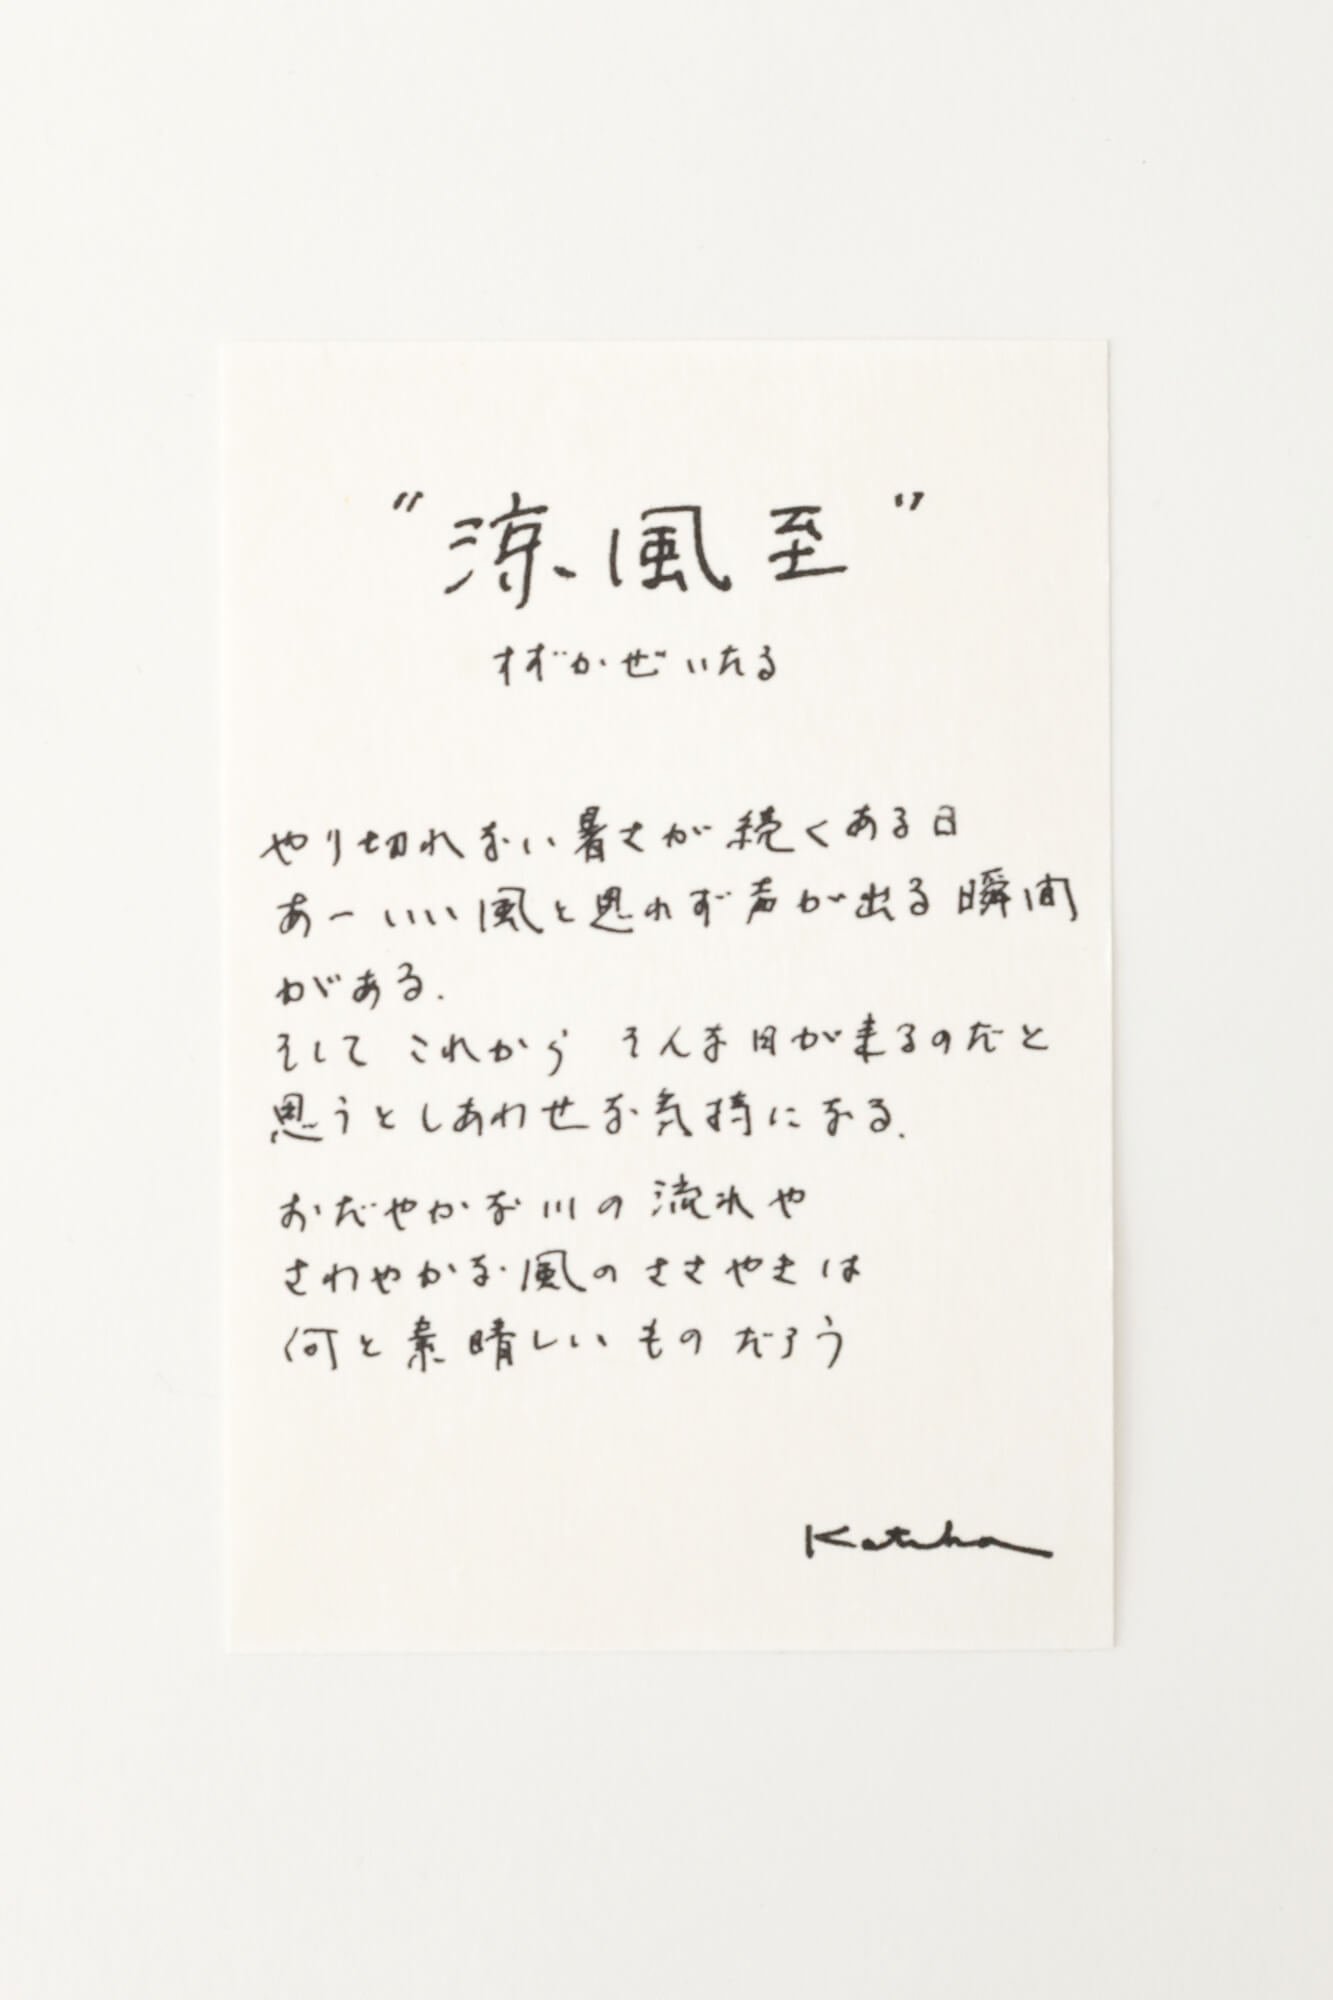 "涼風至"
すずかぜいたる
やり切れない暑さが続くある日
あーいい風と思わず声が出る瞬間
がある.
そして これから そんな日が来るのだと
思うとしあわせな気持になる.
おだやかな川の流れや
さわやかな風のささやきは
何と素晴しいものだろう